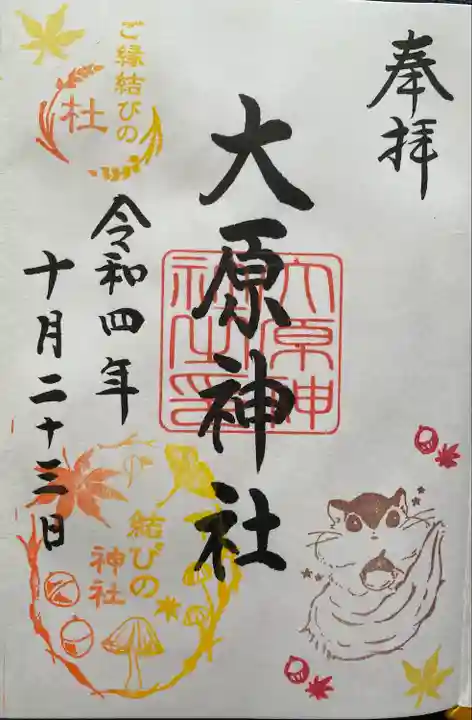 奉拝
大原神社
大原神社之印
令和四年
十月二十三日
ご縁結びの
杜
結びの
神社